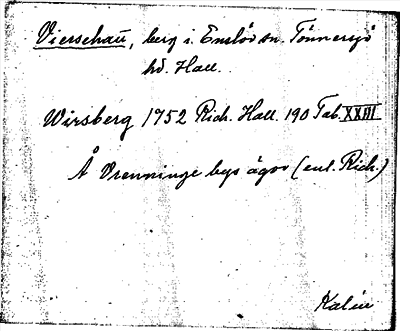 Vierschau, berg i. Enslöv sn. Tönnersjö
hd. Hall.
Wirsberg 1752 Rich. Hall. 190 Tab. XXIII
Å Vrenninge bys ägor (enl. Rich.)
Kalén